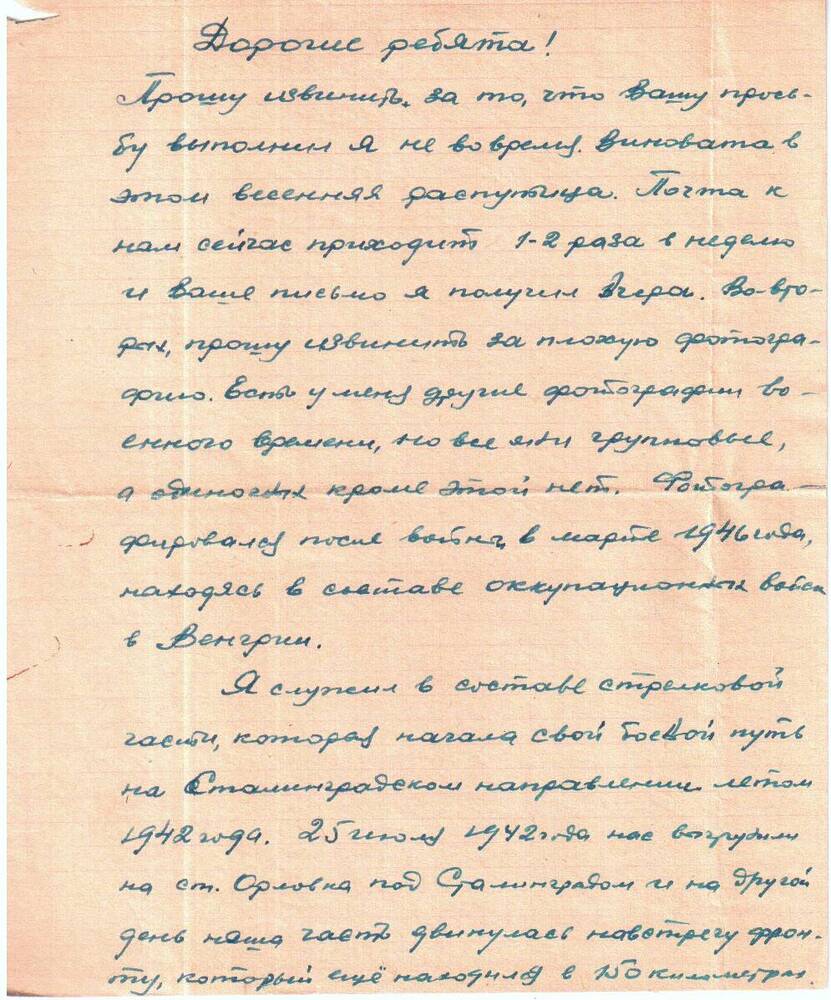 Дорогие ребята!
Прошу извинить, за то, что Вашу прось-
бу выполнил я не во время. Виновата в
этом весенняя распутица. Почта к
нам сейчас приходит 1-2 раза в неделю
и Ваше письмо я получил вчера. Во-вто-
рых, прошу извинить за плохую фотогра-
фию. Есть у меня другие фотографии во-
енного времени, но все они групповые,
а одиночных кроме этой нет. Фотогра-
фировался после войны, в марте 1946 года,
находясь в составе оккупационных войск
в Венгрии.
Я служил в составе стрелковой
части, которая начала свой боевой путь
на Сталинградском направлении летом
1942 года. 25 июля 1942 года нас выгрузили
на ст. Орловка под Сталинградом и на другой
день наша часть двинулась навстречу фрон-
ту, который ещё находился в 150 километрах